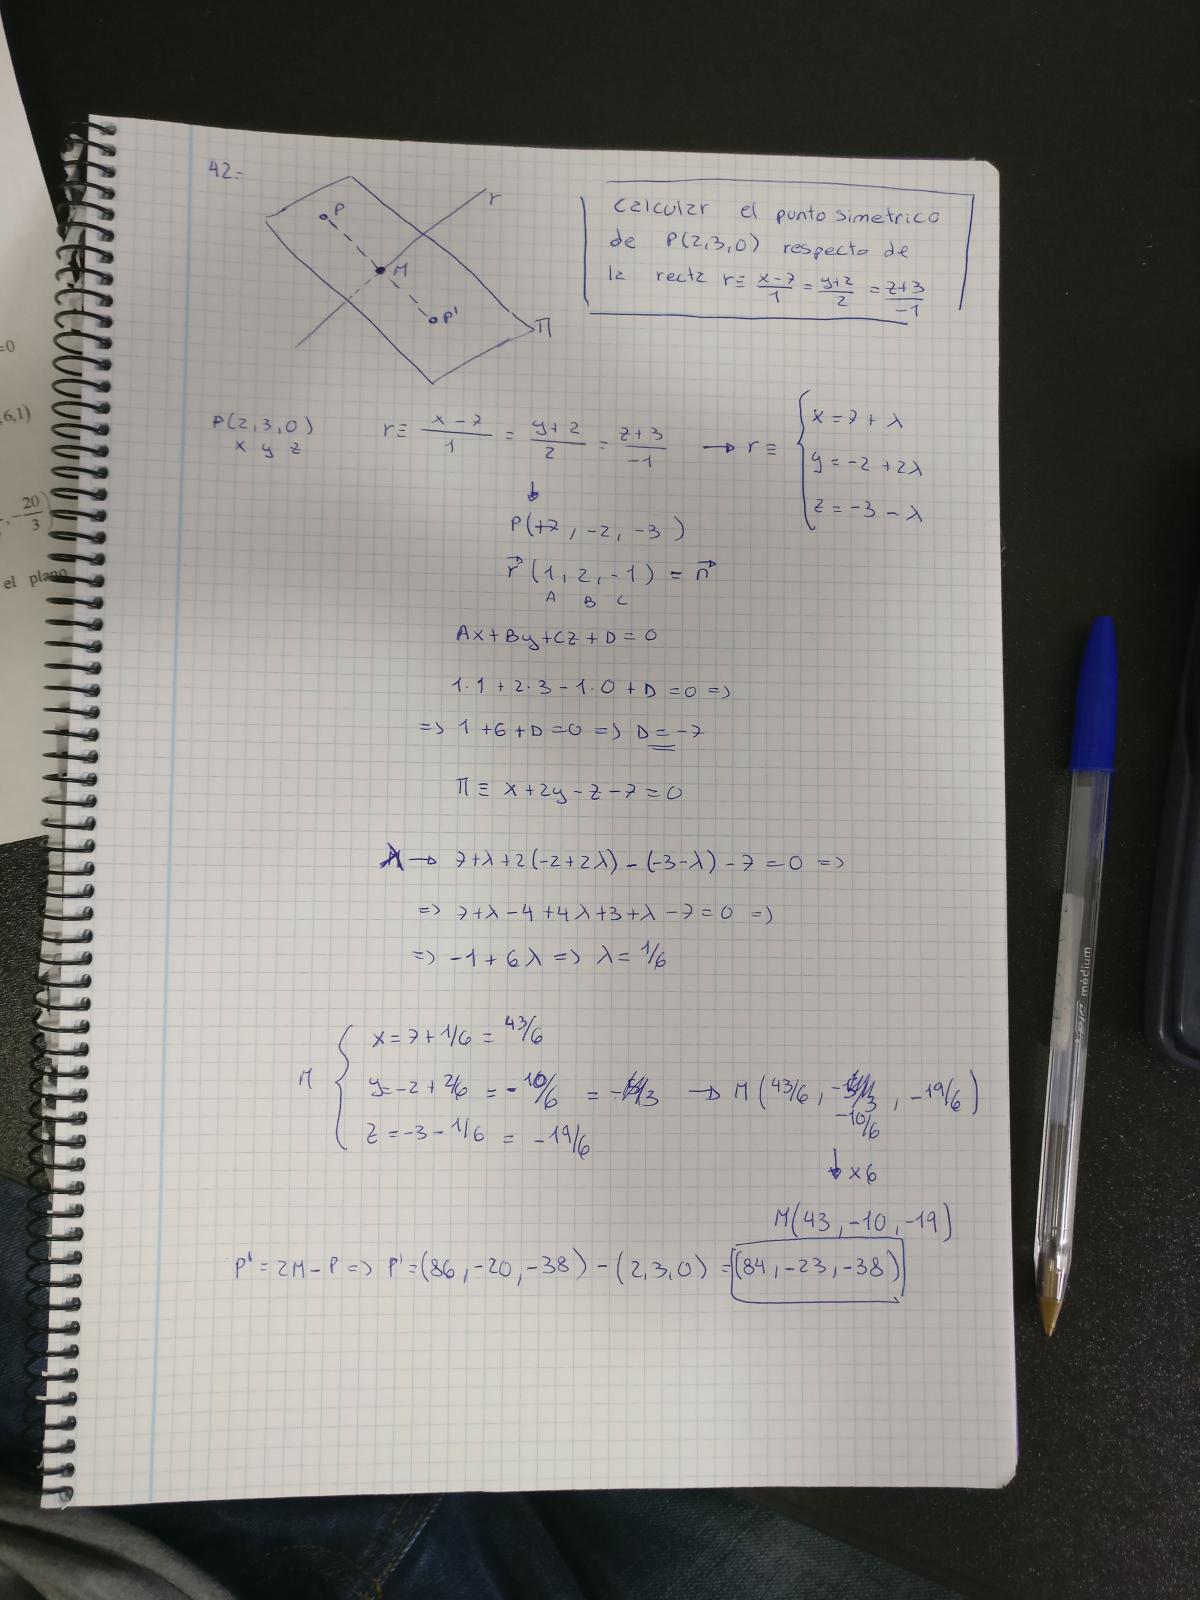 42=
P
r
M
P'
Π
Calcular el punto simetrico
de P(2,3,0) respecto de
la recta r≡ x-7/1 = y+2/2 = z+3/-1
P(2,3,0)
x y z
r≡ x-7/1 = y+2/2 = z+3/-1 → r≡ { x=7+λ
y=-2+2λ
z=-3-λ
↓
P(+7, -2, -3)
r⃗ (1, 2, -1) = n⃗
A B C
Ax+By+Cz+D=0
1·1+2·3-1·0+D=0 =>
=> 1+6+D=0 => D=-7
Π≡ x+2y-z-7=0
→ 7+λ+2(-2+2λ)-(-3-λ)-7=0 =>
=> 7+λ-4+4λ+3+λ-7=0 =>
=> -1+6λ => λ=1/6
M { x=7+1/6 = 43/6
y=-2+2/6 = -10/6 =
z=-3-1/6 = -19/6
→ M(43/6, -10/6, -19/6)
↓ x6
M(43, -10, -19)
P'=2M-P => P'=(86, -20, -38) - (2,3,0) = (84, -23, -38)
=0
,6,1)
, -20/3)
el plano
médium